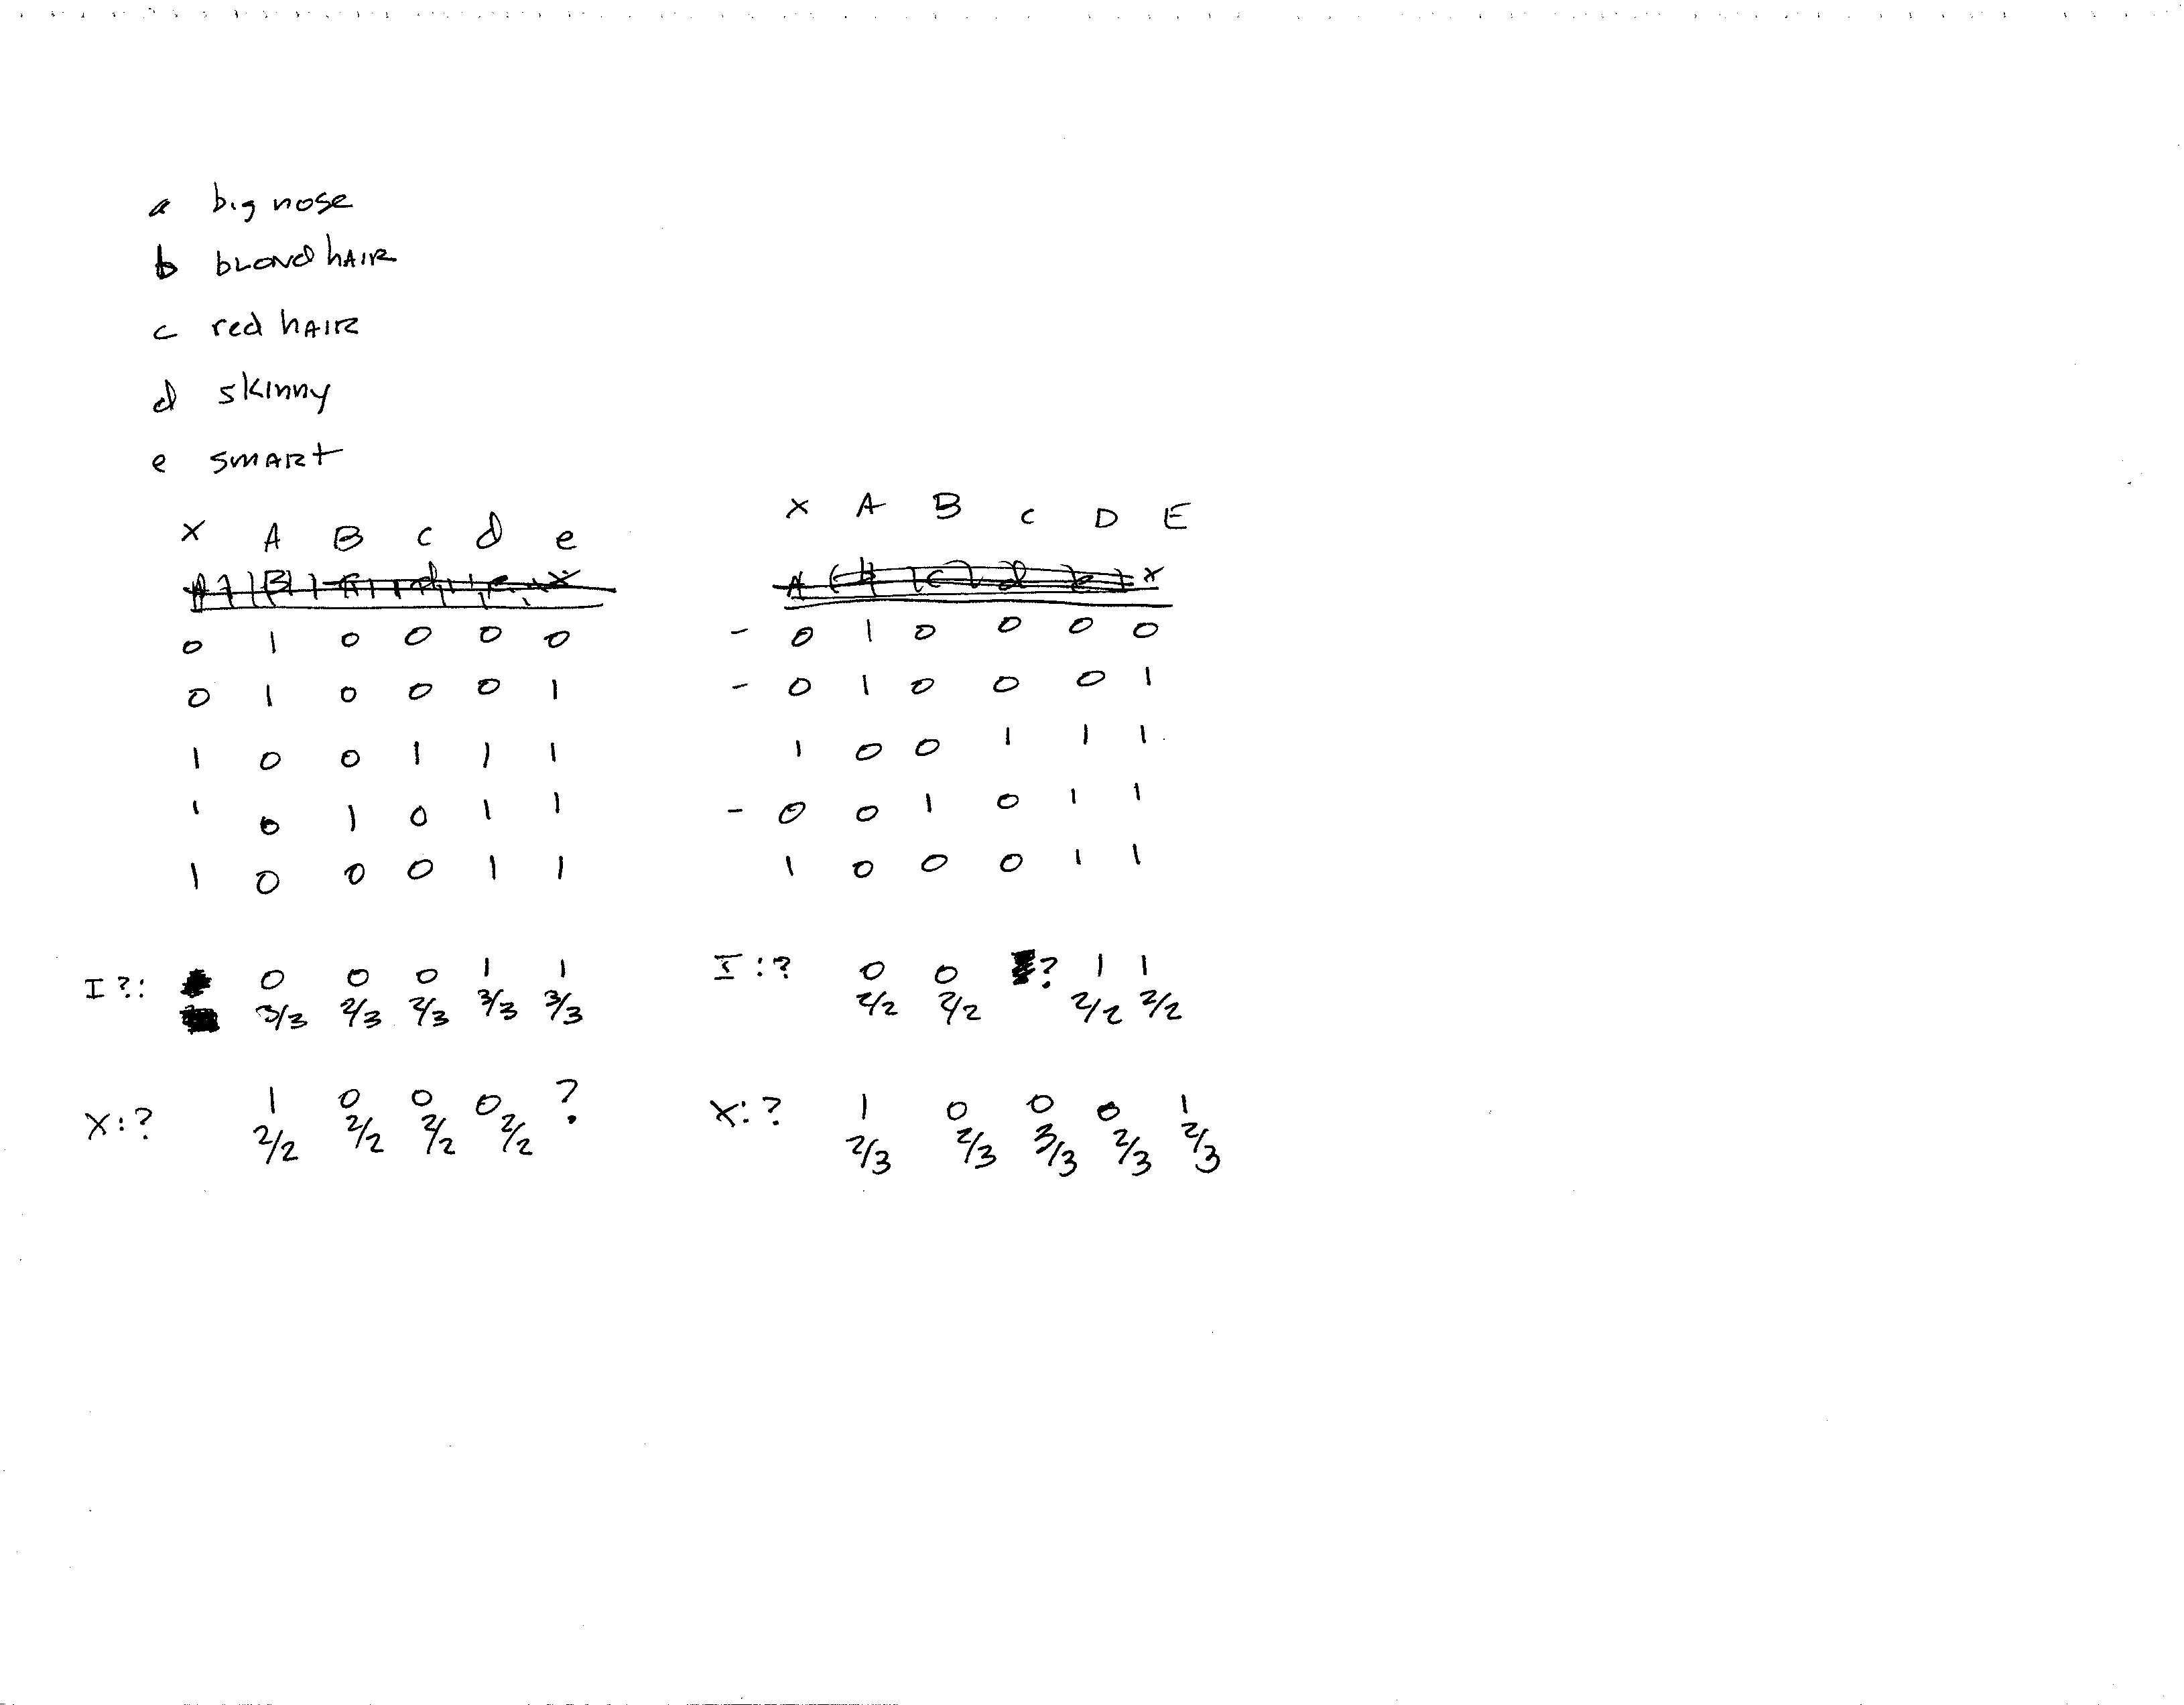 a big nose
b BLOND hAIR
c red hAIR
d skinny
e SMARt
X A B c d e
0 1 0 0 0 0
0 1 0 0 0 1
1 0 0 1 1 1
1 0 1 0 1 1
1 0 0 0 1 1
I?: 0 0 0 1 1
3/3 2/3 2/3 3/3 3/3
X:? 1 0 0 0 ?
2/2 2/2 2/2 2/2
X A B c D E
A b c d e x
- 0 1 0 0 0 0
- 0 1 0 0 0 1
1 0 0 1 1 1
- 0 0 1 0 1 1
1 0 0 0 1 1
I:? 0 0 ? 1 1
2/2 2/2 2/2 2/2
X:? 1 0 0 0 1
2/3 2/3 3/3 2/3 2/3